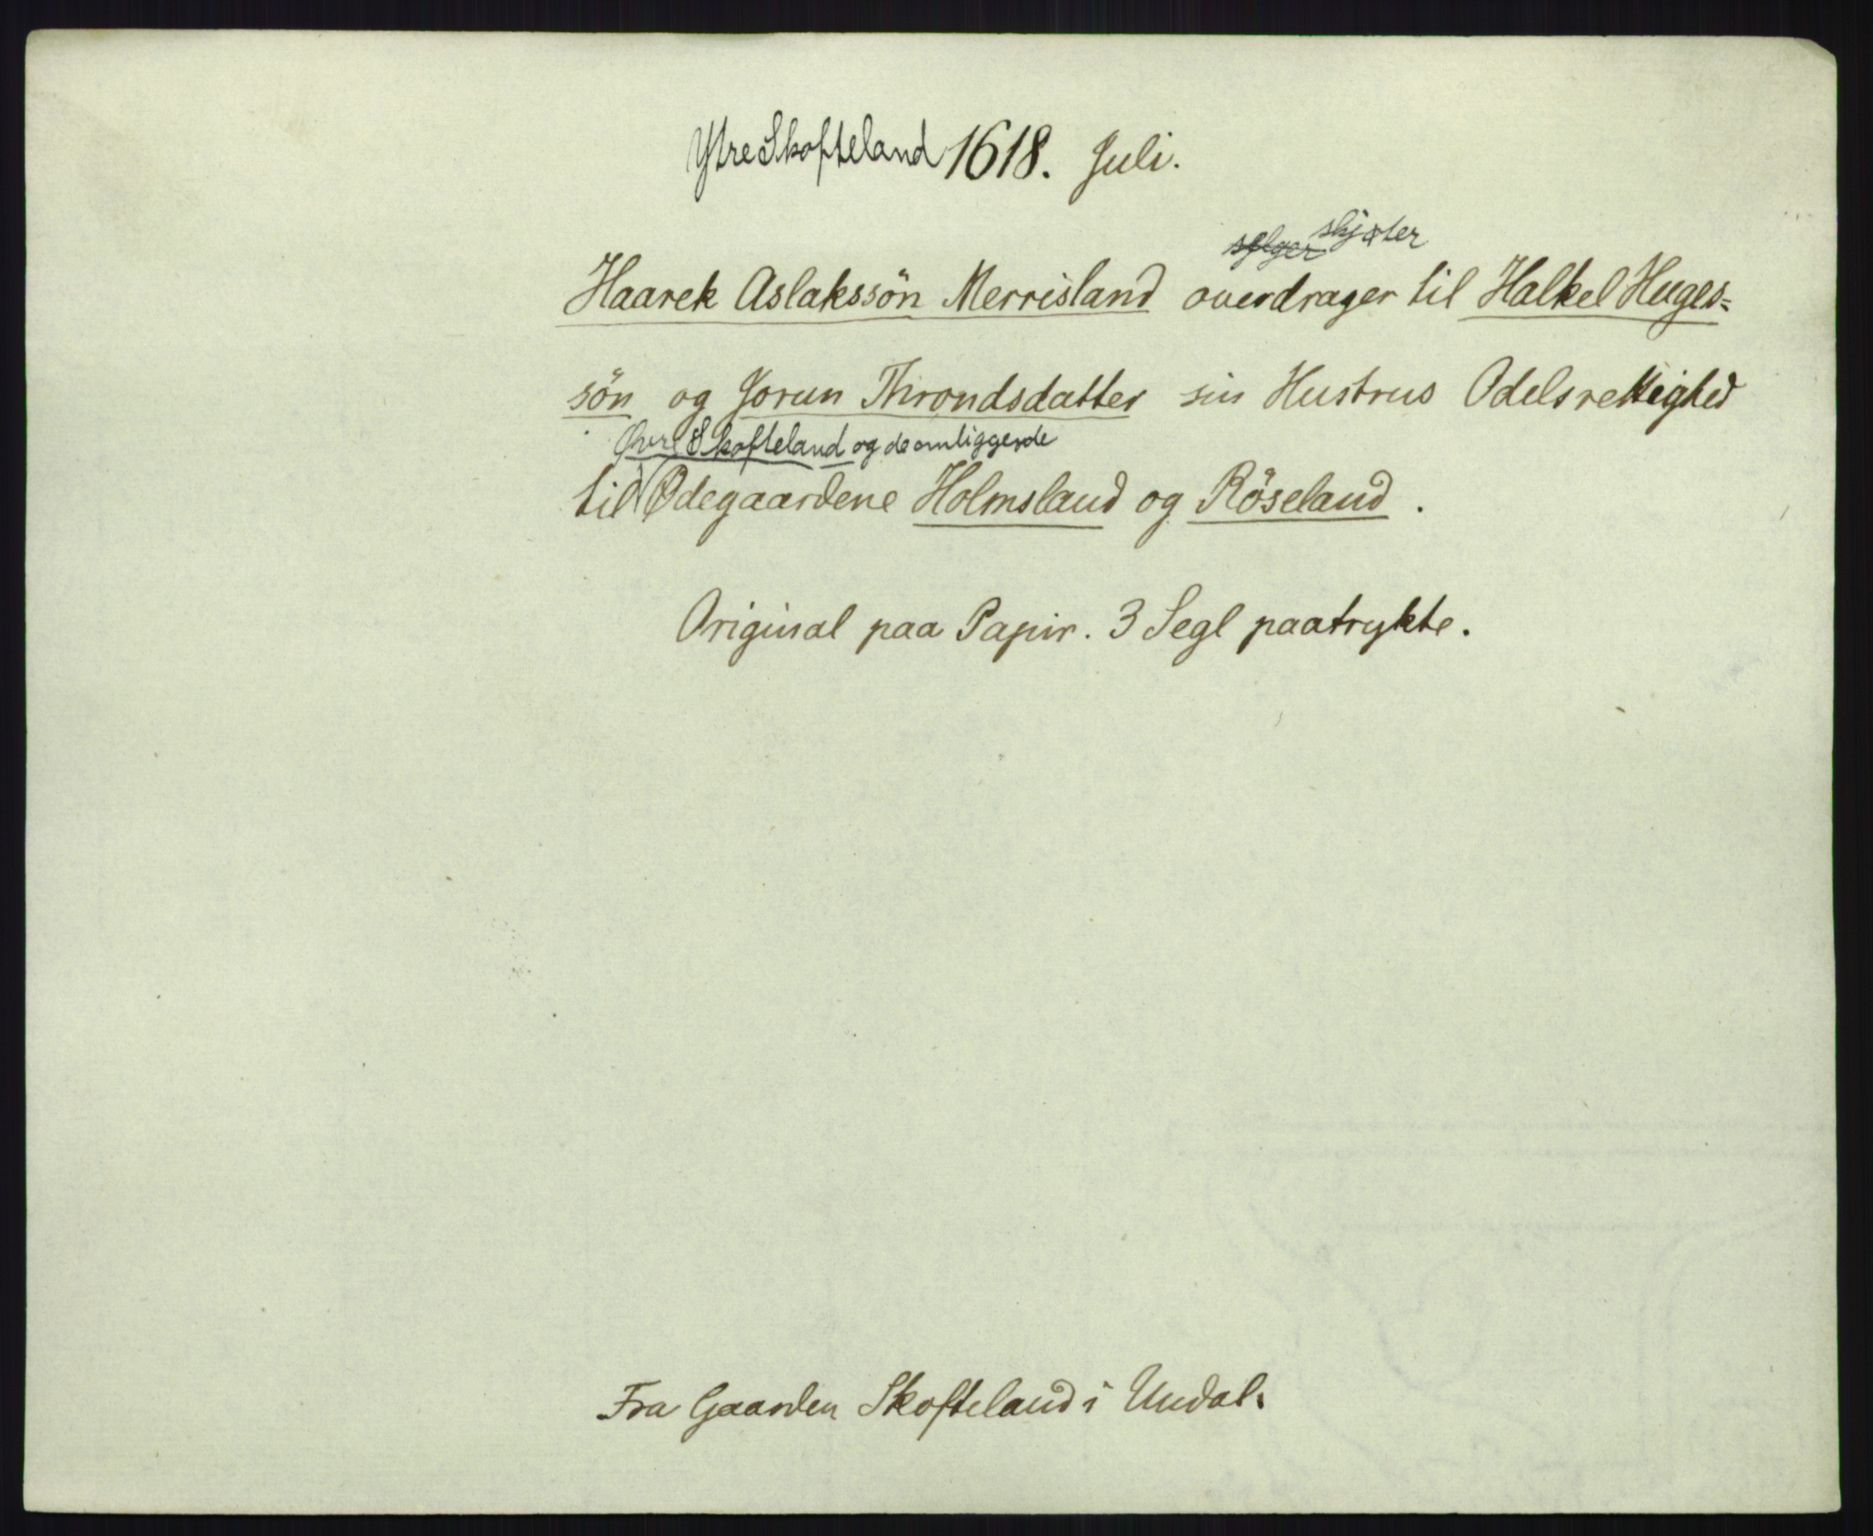 Ytre Skofteland 1618. Juli.
selger skjøter
Haarek Aslakssön Merrisland overdrager til Halkel Huges=
sön og Jorun Throndsdatter sin Hustrus Odelsrettighed
Øvre Skofteland og de omliggende
til Ødegaardene Holmsland og Röseland.
Original paa Papir. 3 Segl paatrykte.
Fra Gaarden Skofteland i Undal.